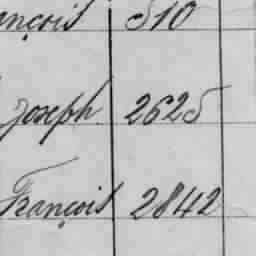 ançois 510
Joseph 2625
François 2842